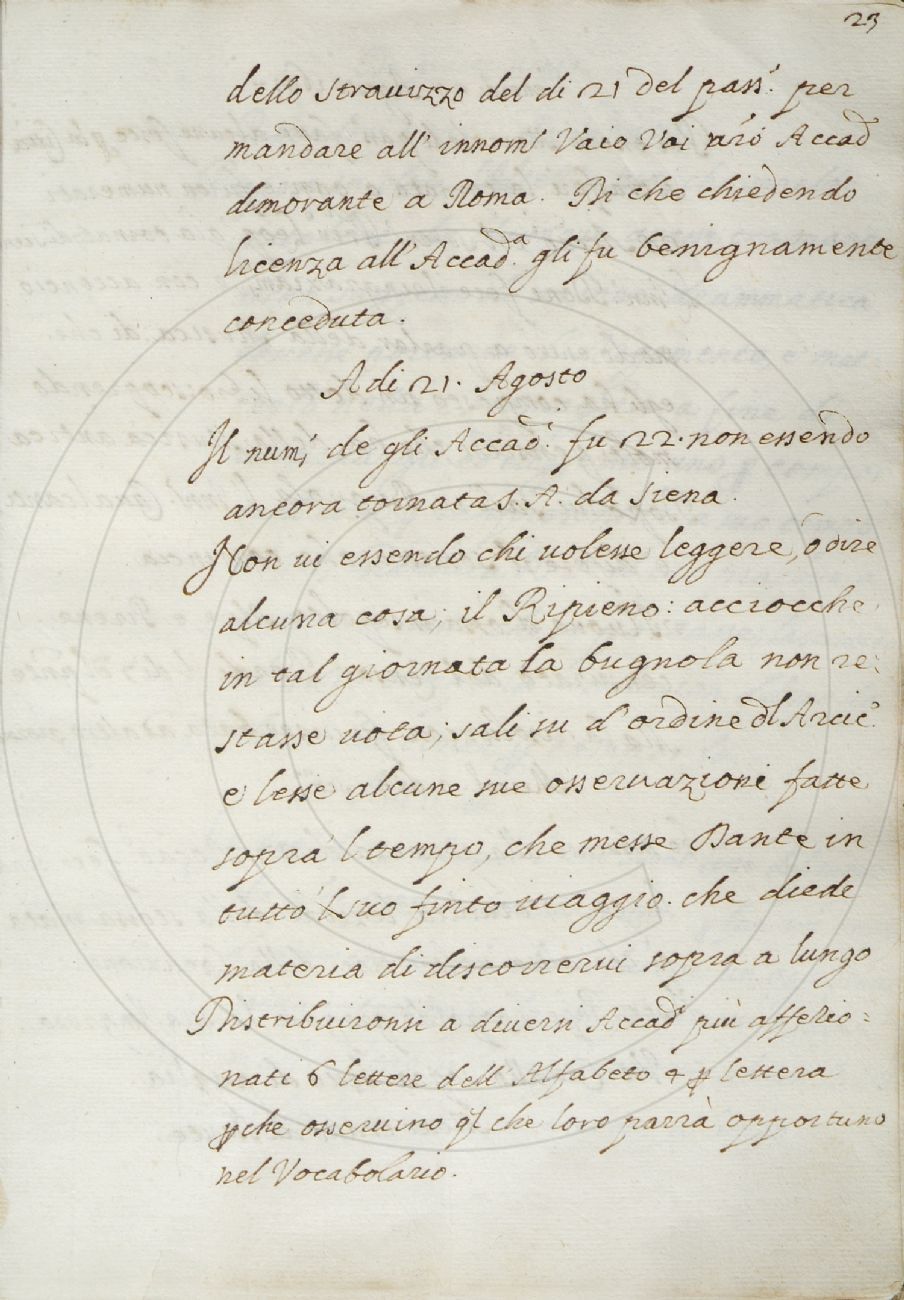 23
dello stravizzo del di 21 del pass. per
mandare all' innom' Vaio Vai n̄ro Accad
dimorante a Roma. Di che chiedendo
licenza all' Accad.a gli fu benignamente
conceduta.
A di 21. Agosto
Il num. de gli Accad.i fu 22. non essendo
ancora tornata S. A. da Siena.
Non vi essendo chi volesse leggere, o dire
alcuna cosa; il Ripieno: acciocche
in tal giornata la bugnola non re:
stasse vota; sali su d' ordine dl Arcic.o
e lesse alcune sue osservazioni fatte
sopra 'l tempo, che messe Dante in
tutto 'l suo finto viaggio. che diede
materia di discorrervi sopra a lungo
Distribuironsi a diversi Accad.i più affezio=
nati 6 lettere dell Alfabeto 4 ꝑ lettera
ꝑche osservino ql che loro parrà opportuno
nel Vocabolario.